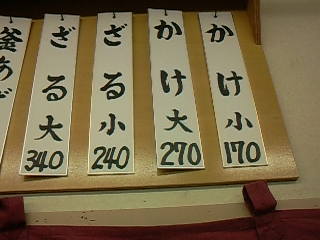 かけ小
170
かけ大
270
ざる小
240
ざる大
340
釜あげ